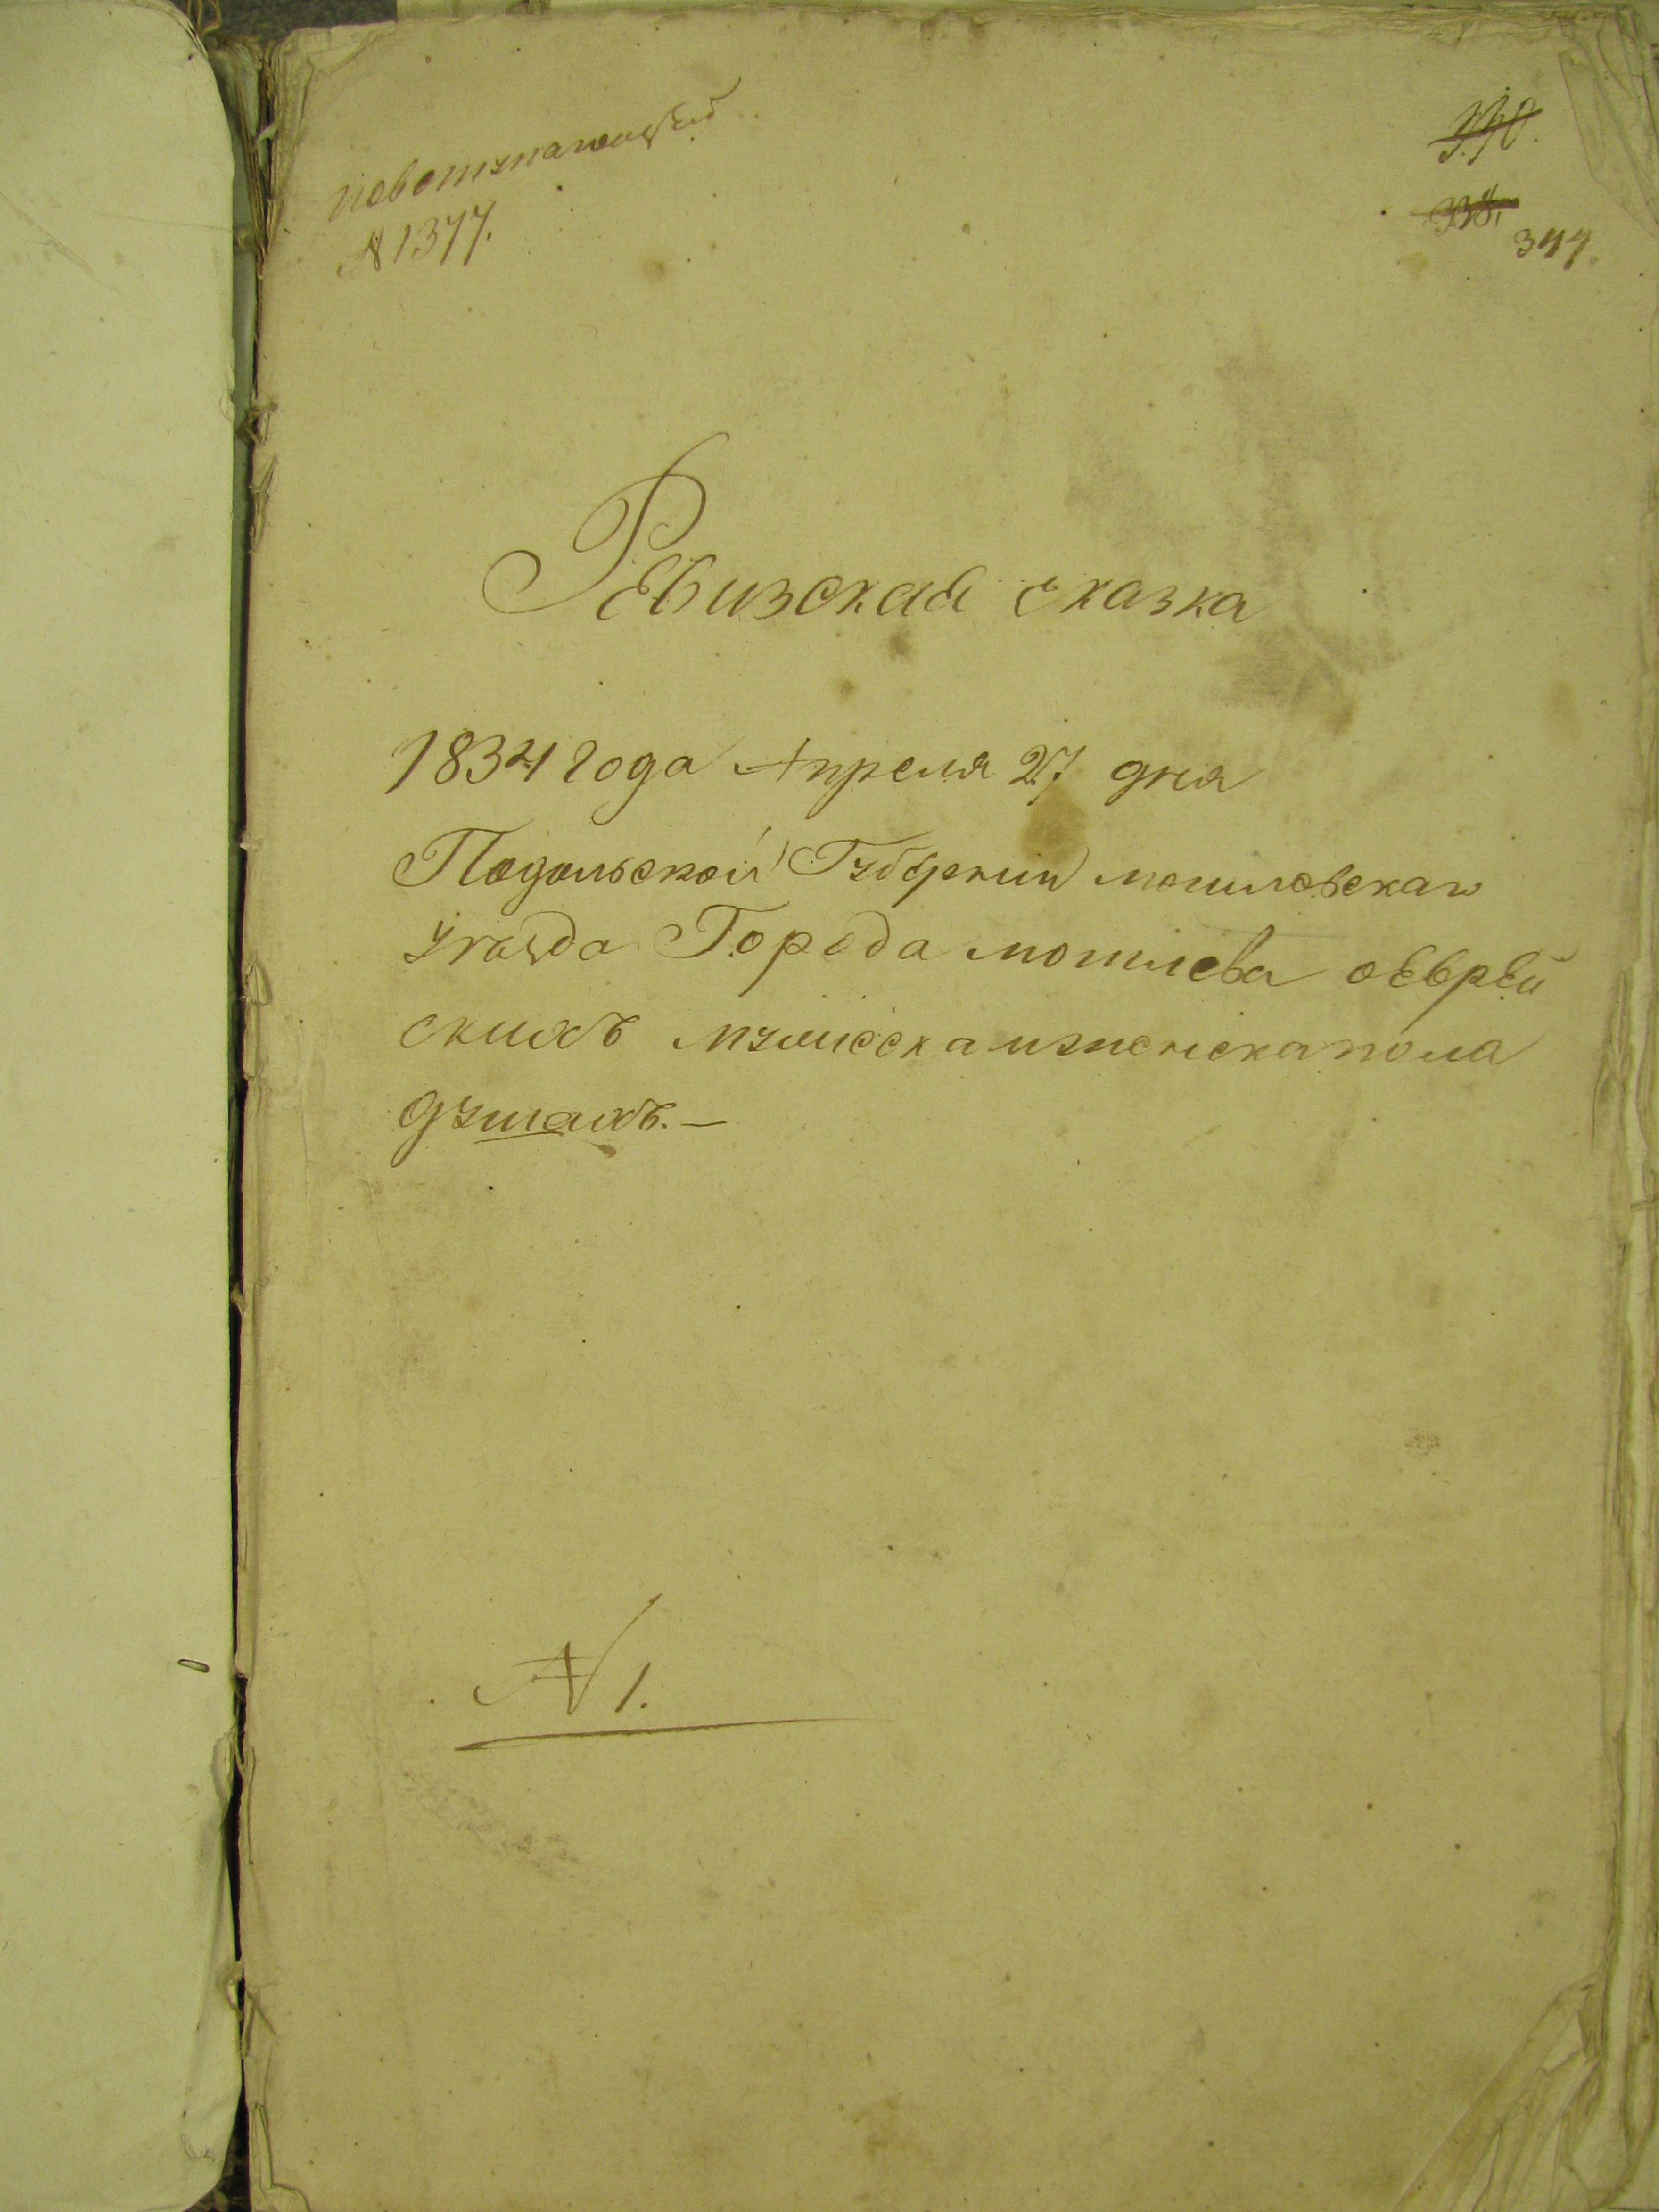 № 1377.
344.
Ревизская сказка
1834 года Апреля 27 дня
Подольской Губернии могилевскаго
уезда Города могилева оеврей
скихъ мужеска иженска пола
душахъ.—
№ 1.